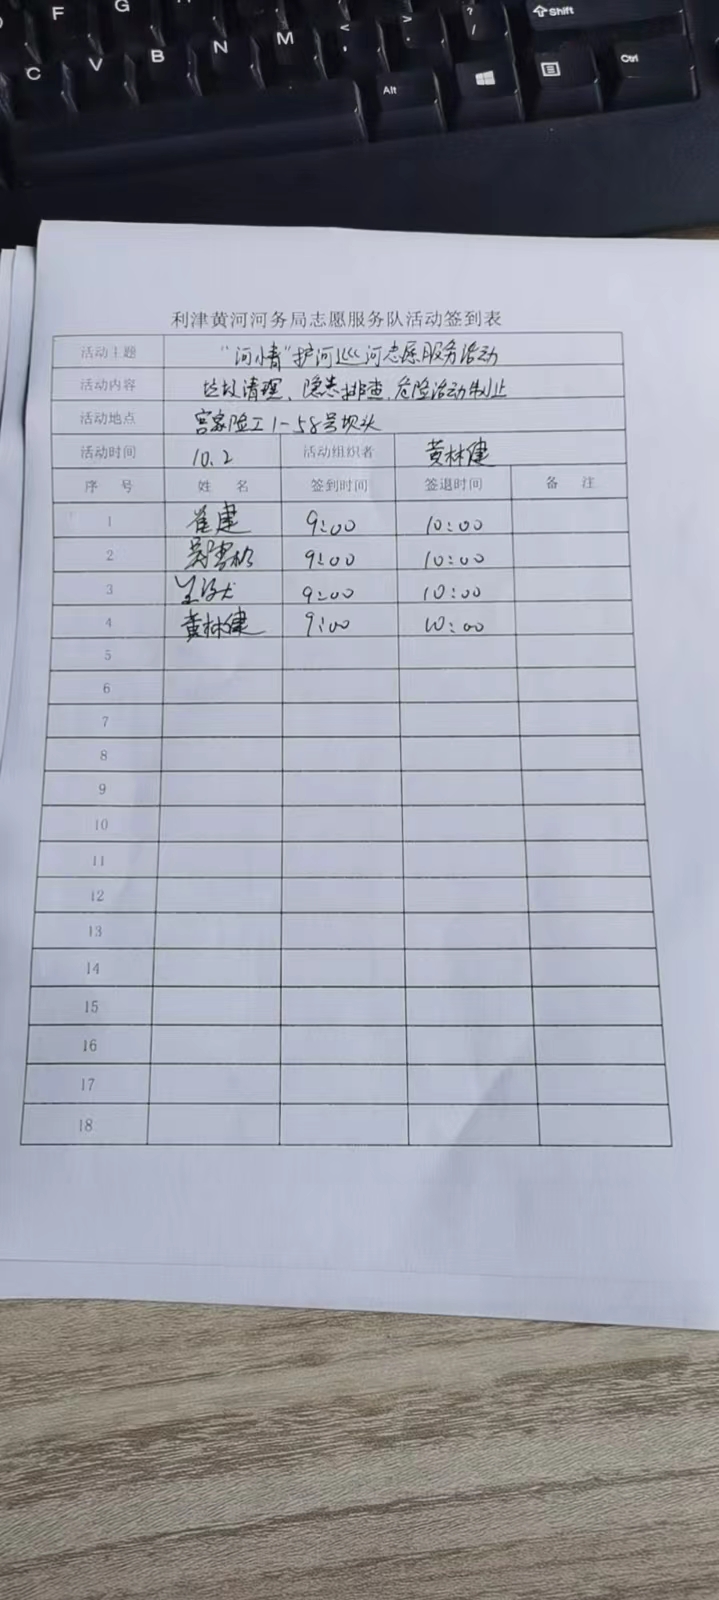 F G
C V B N M < , > . ? / Shift
Alt Ctrl
利津黄河河务局志愿服务队活动签到表
活动主题 “河小青”护河巡河志愿服务活动
活动内容 垃圾清理、隐患排查、危险活动制止
活动地点 宫家险工1-58号坝头
活动时间 10.2 活动组织者 黄林健
序 号 姓 名 签到时间 签退时间 备 注
1 崔建 9:00 10:00
2 9:00 10:00
3 9:00 10:00
4 黄林健 9:00 10:00
5
6
7
8
9
10
11
12
13
14
15
16
17
18